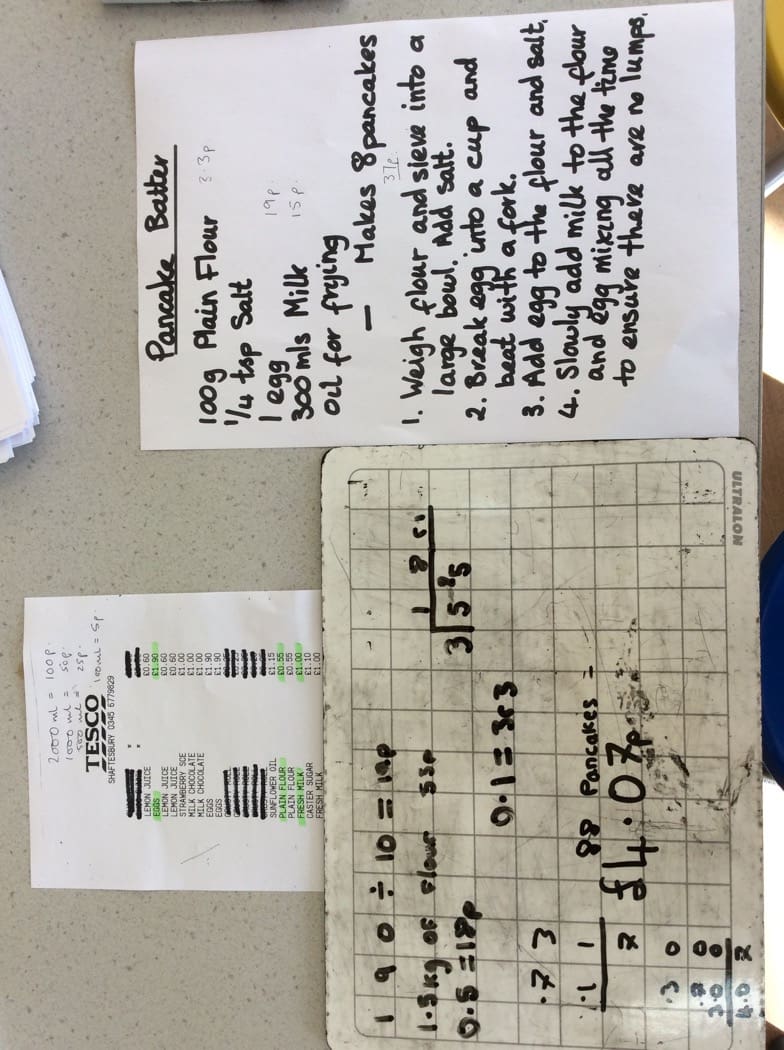 Pancake Batter
100g Plain Flour 3.3p
1/4 tsp Salt
1 egg 19p
300 mls Milk 15p
oil for frying
— Makes 8 pancakes
37p
1. Weigh flour and sieve into a
large bowl. Add salt.
2. Break egg into a cup and
beat with a fork.
3. Add egg to the flour and salt.
4. Slowly add milk to the flour
and egg mixing all the time
to ensure there are no lumps.
2000 ml = 100p.
1000 ml = 50p.
500 ml = 25p.
100ml = 5p.
TESCO
SHAFTESBURY 0345 6779829
LEMON JUICE £0.60
EGGS £1.90
LEMON JUICE £0.60
LEMON JUICE £0.60
STRAWBERRY SCE £1.00
MILK CHOCOLATE £1.00
MILK CHOCOLATE £1.00
EGGS £1.90
EGGS £1.90
SUNFLOWER OIL £1.15
PLAIN FLOUR £0.55
PLAIN FLOUR £0.55
FRESH MILK £1.00
CASTER SUGAR £1.10
FRESH MILK £1.00
190 ÷ 10 = 19p
1.5kg of flour 55p
0.5 = 18p
0.1 = 3r3
88 Pancakes =
£4.07p
ULTRALON